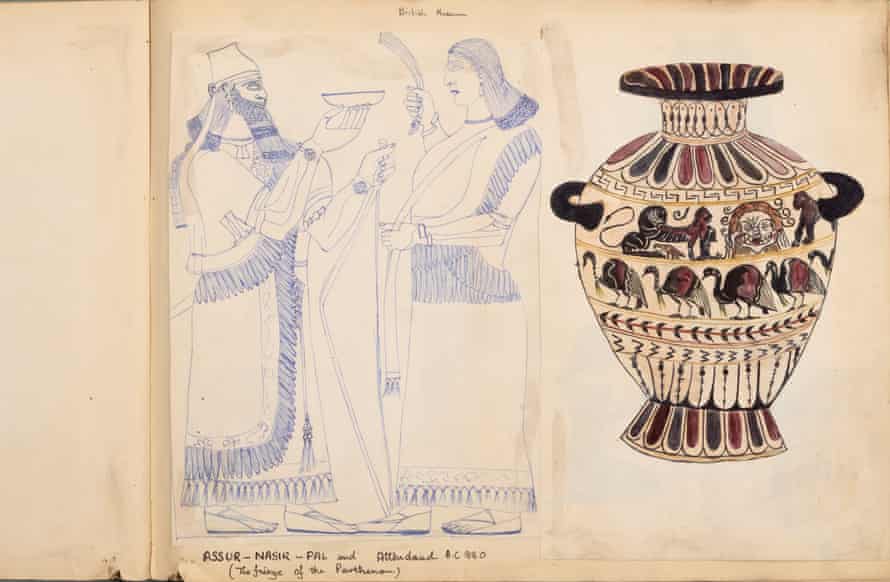 British Museum
ASSUR-NASIR-PAL and Attendand A.C 880
(The fringe of the Parthenon)